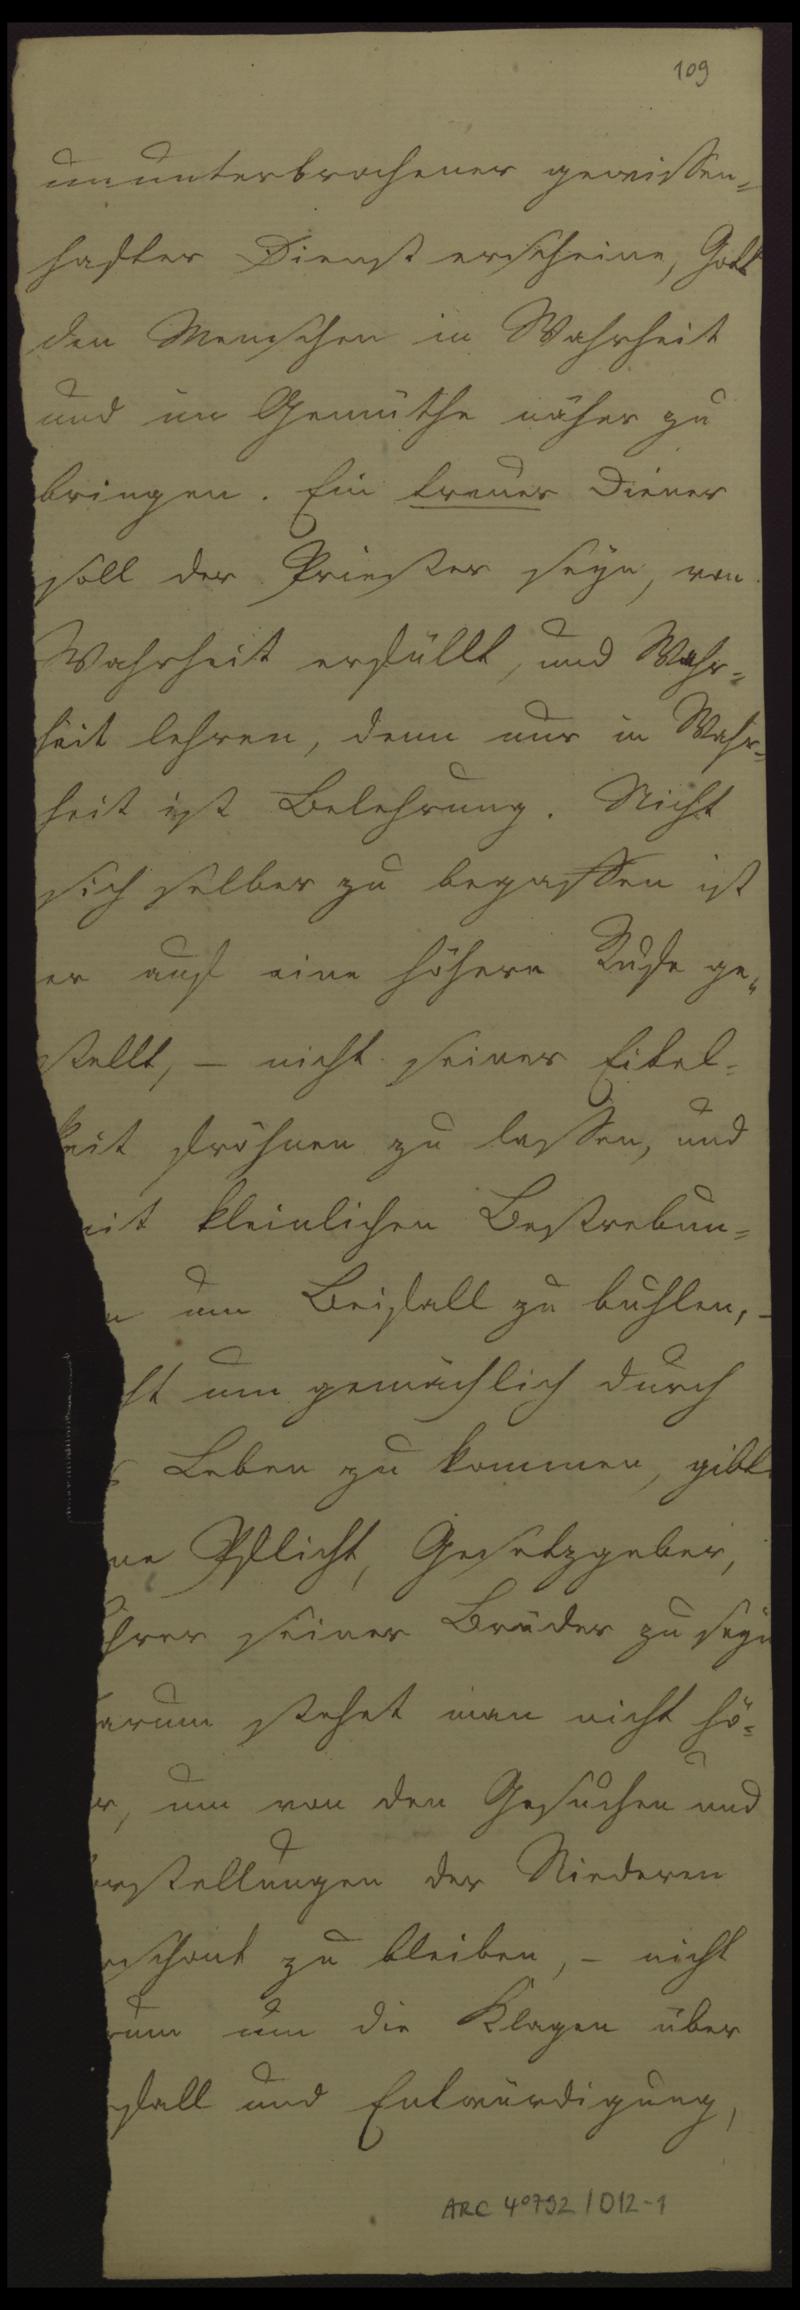 109
ununterbrochener gewissen=
hafter Dienst erscheine, Gott
den Menschen in Wahrheit
und im Gemüthe näher zu
bringen. Ein treuer Diener
soll der Priester seyn, von
Wahrheit erfüllt, und Wahr=
heit lehren, denn nur in Wahr=
heit ist Belehrung. Nicht
sich selber zu begaffen ist
er auf eine höhere Stufe ge=
stellt, – nicht seiner Eitel=
keit fröhnen zu lassen, und
mit kleinlichen Bestrebun=
n um Beifall zu buhlen, –
ht um gemächlich durch
s Leben zu kommen, gibt
ne Pflicht, Gesetzgeber,
hrer seiner Brüder zu seyn
arum stehet man nicht hö=
r, um von den Gesuchen und
orstellungen der Niederen
rschont zu bleiben, – nicht
rum um die Klagen über
fall und Entwürdigung,
ARC 4°792/012-1